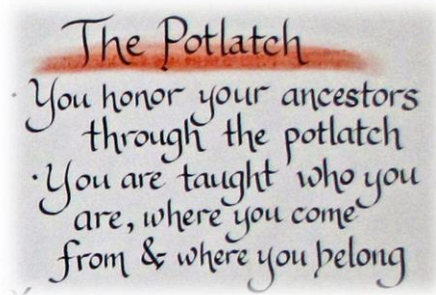 The Potlatch
· You honor your ancestors
through the potlatch
· You are taught who you
are, where you come
from & where you belong